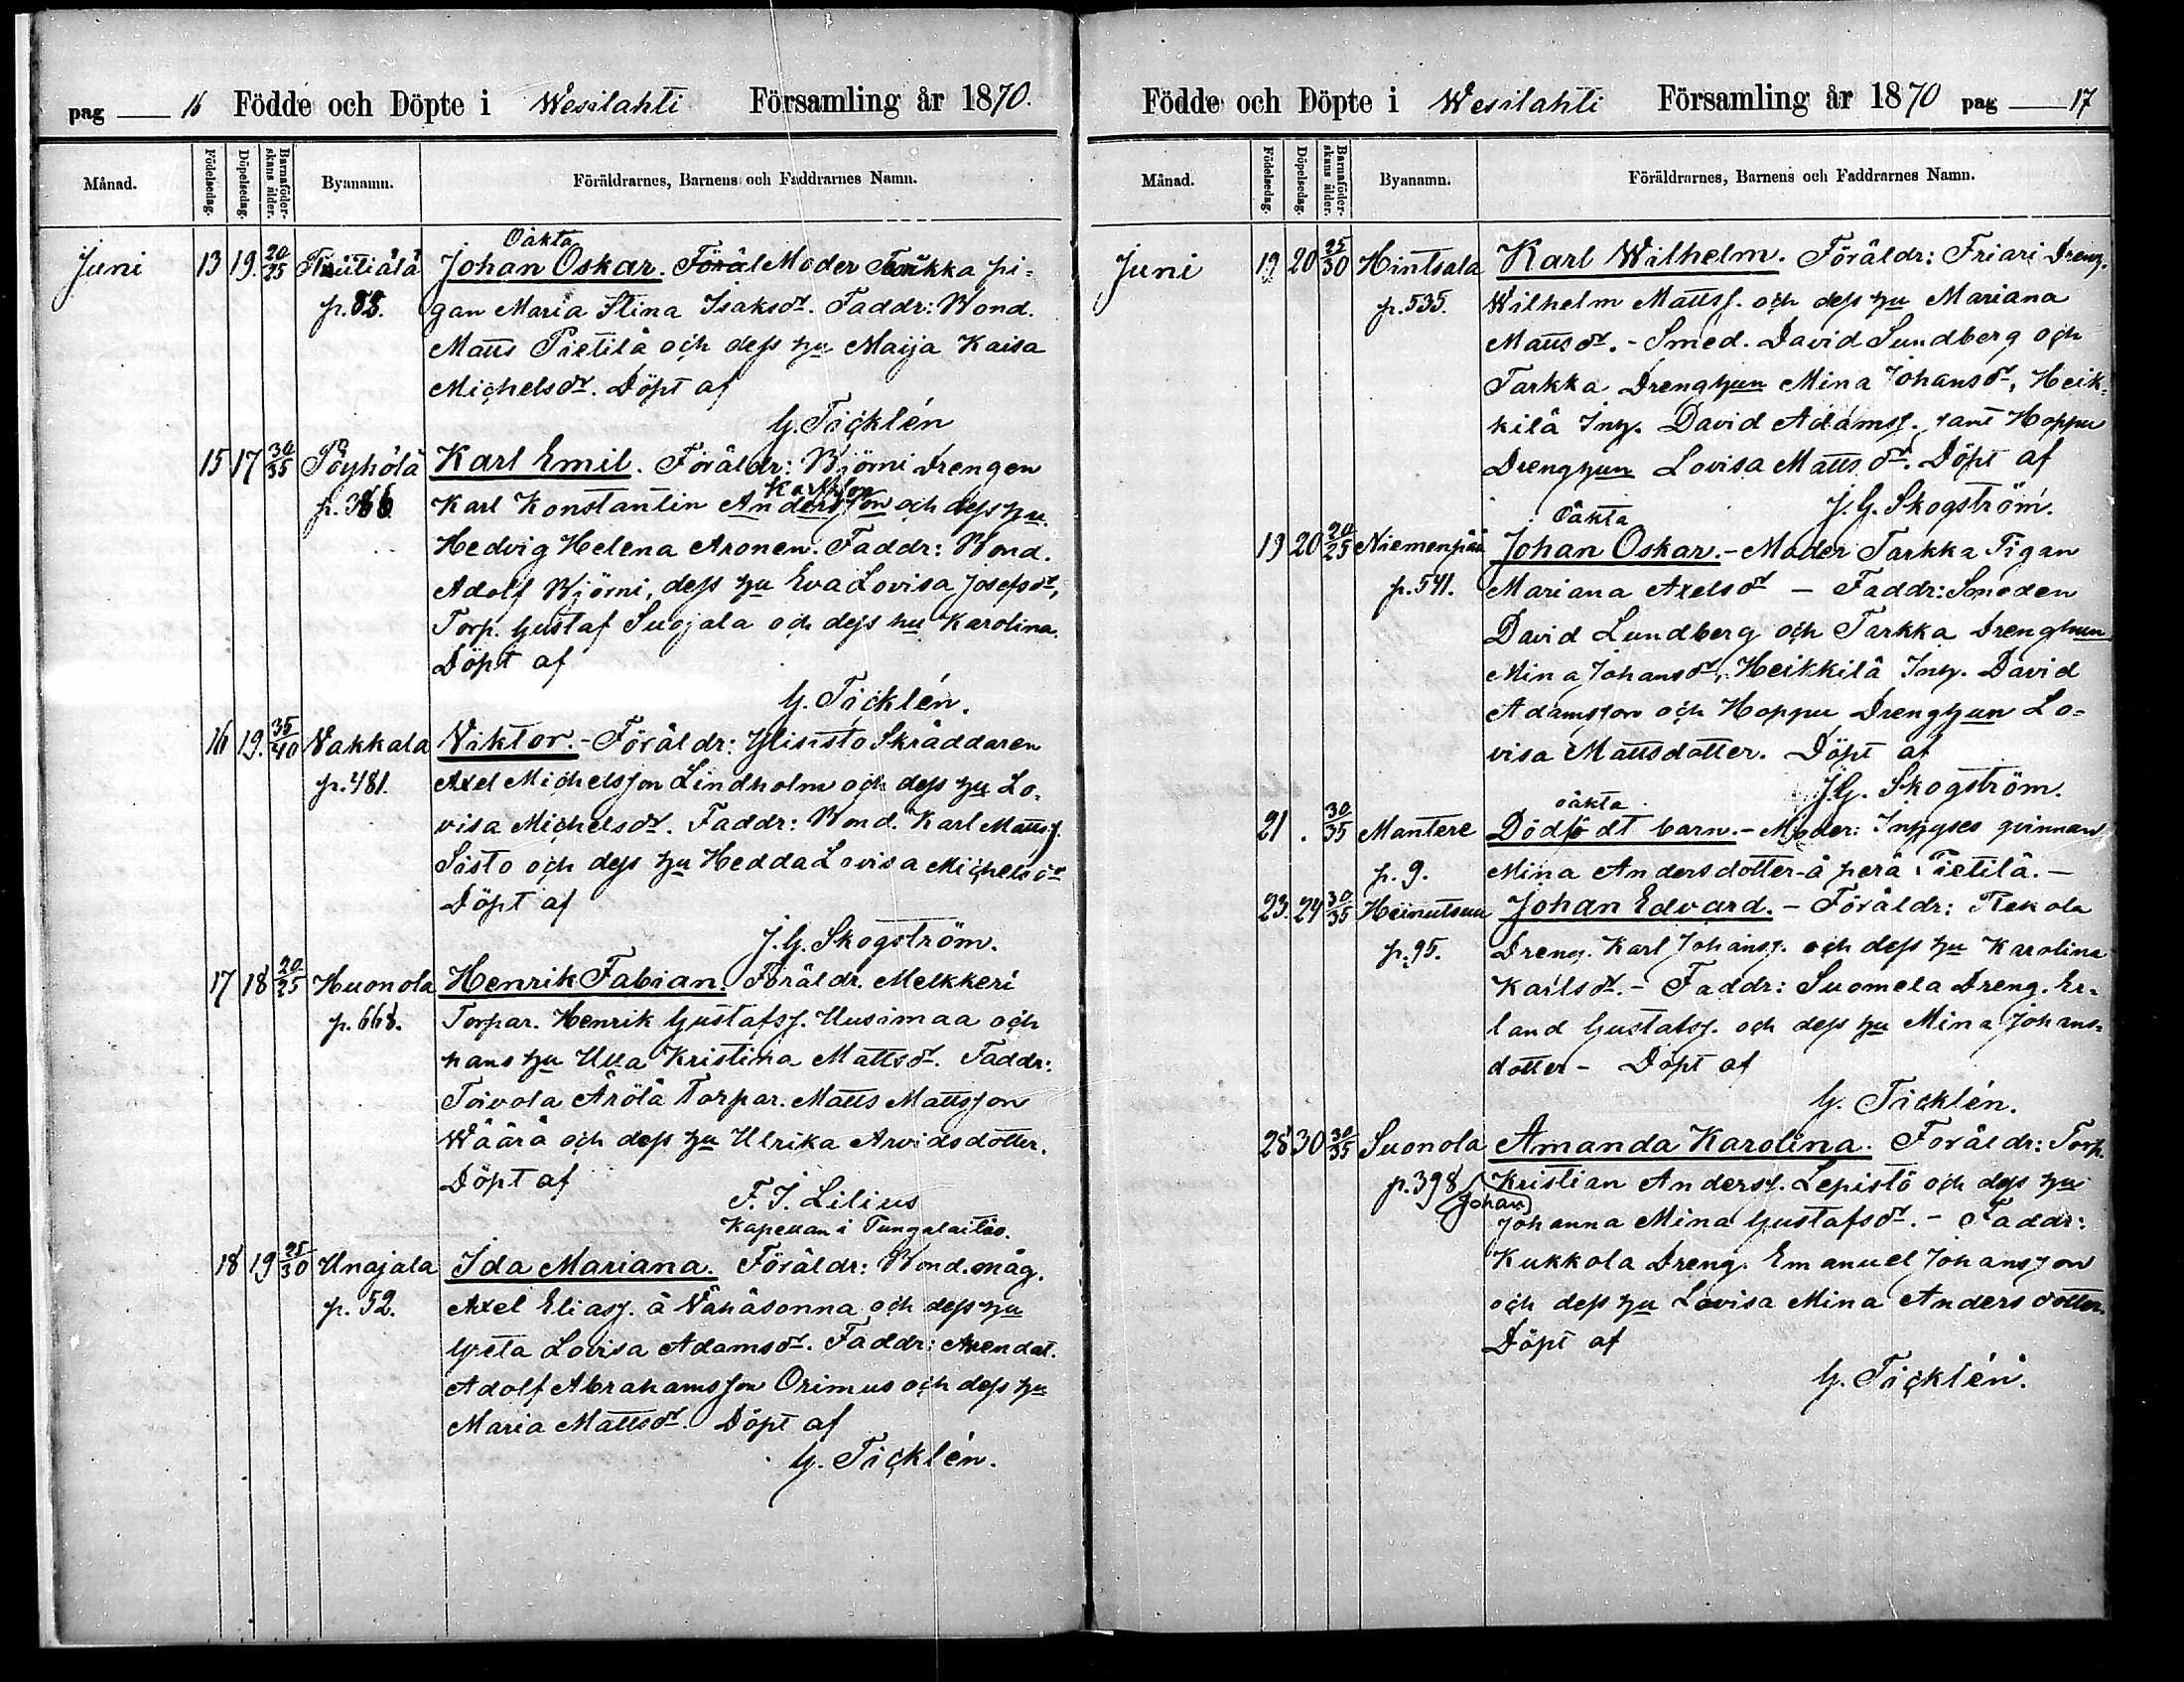 pag 16 Födde och Döpte i Wesilahti Församling år 1870.
Månad. Födelsedag. Döpelsedag. Barnaföderskans ålder. Byanamn. Föräldrarnes, Barnens och Faddrarnes Namn.
Oäkta
Juni 13 19. 20/25 Johan Oskar. Föräl Moder pi-
p. 85. gan Maria Stina Isaksdr. Faddr: Bond.
Matts Pietilä och dess hu Maija Kaisa
Michelsdr. Döpt af
G. Ticklén
15 17 30/35 Pöyhölä Karl Emil. Föräldr: Björni Drengen
Karlsson
p. 366 Karl Konstantin Andersson och dess hu
Hedvig Helena Aronen. Faddr: Bond.
Adolf Björni, dess hu Eva Lovisa Josefsdr,
Torp. Gustaf Suojala och dess hu Karolina.
Döpt af
G. Ticklén.
16 19. 35/40 Vakkala Viktor. - Föräldr: Ylisisto Skräddaren
p. 481. Axel Michelsson Lindholm och dess hu Lo-
visa Michelsdr. Faddr: Bond. Karl Mattss.
Sisto och dess hu Hedda Lovisa Michelsdr
Döpt af
J. G. Skogström.
17 18 20/25 Huonola Henrik Fabian. Föräldr. Melkkeri
p. 668. Torpar. Henrik Gustafss. Uusimaa och
hans hu Ulla Kristina Mattsdr. Faddr:
Toivola Ärölä Torpar. Matts Mattsson
Wäärä och dess hu Ulrika Arvidsdotter.
Döpt af
F. J. Lilius
Kapellan i Tungalaitio.
18 19 25/30 Unajala Ida Mariana. Föräldr: Bond.måg.
p. 52. Axel Eliass. å Vähäsonna och dess hu
Greta Lovisa Adamsdr. Faddr: Arendat.
Adolf Abrahamsson Orimus och dess hu
Maria Mattsdr. Döpt af
G. Ticklén.
Födde och Döpte i Wesilahti Församling år 1870 pag 17
Månad. Födelsedag. Döpelsedag. Barnaföderskans ålder. Byanamn. Föräldrarnes, Barnens och Faddrarnes Namn.
Juni 19 20 25/30 Hintsala Karl Wilhelm. Föräldr: Friari Dreng.
p. 535. Wilhelm Mattss. och dess hu Mariana
Mattsdr. - Smed. David Sundberg och
Tarkka Drenghun Mina Johansdr, Heik-
kilä Inh. David Adamss. samt Hoppu
Drenghun Lovisa Mattsdr. Döpt af
J. G. Skogström.
Oäkta
19 20 20/25 Niemenpää Johan Oskar. - Moder Tarkka Pigan
p. 541. Mariana Axelsdr - Faddr: Smeden
David Lundberg och Tarkka Drenghun
Mina Johansdr, Heikkilä Inh. David
Adamsson och Hoppu Drenghun Lo-
visa Mattsdotter. Döpt af
J. G. Skogström.
oäkta
21 . 30/35 Mantere Dödfödt barn. - Moder: Inhyses qvinnan
p. 9. Mina Andersdotter å perä Pietilä. -
23. 24 30/35 Heinutsuu Johan Edvard. - Föräldr: Rekola
p. 95. Dreng. Karl Johanss. och dess hu Karolina
Karlsdr. - Faddr: Suomela Dreng. Er-
land Gustafss. och dess hu Mina Johans-
dotter - Döpt af
G. Ticklén.
28 30 30/35 Suonola Amanda Karolina. Föräldr: Torp.
p. 398 Kristian Anderss. Lepistö och dess hu
(Johan)
Johanna Mina Gustafsdr. - Faddr:
Kukkola Dreng. Emanuel Johansson
och dess hu Lovisa Mina Andersdotter.
Döpt af
G. Ticklén.